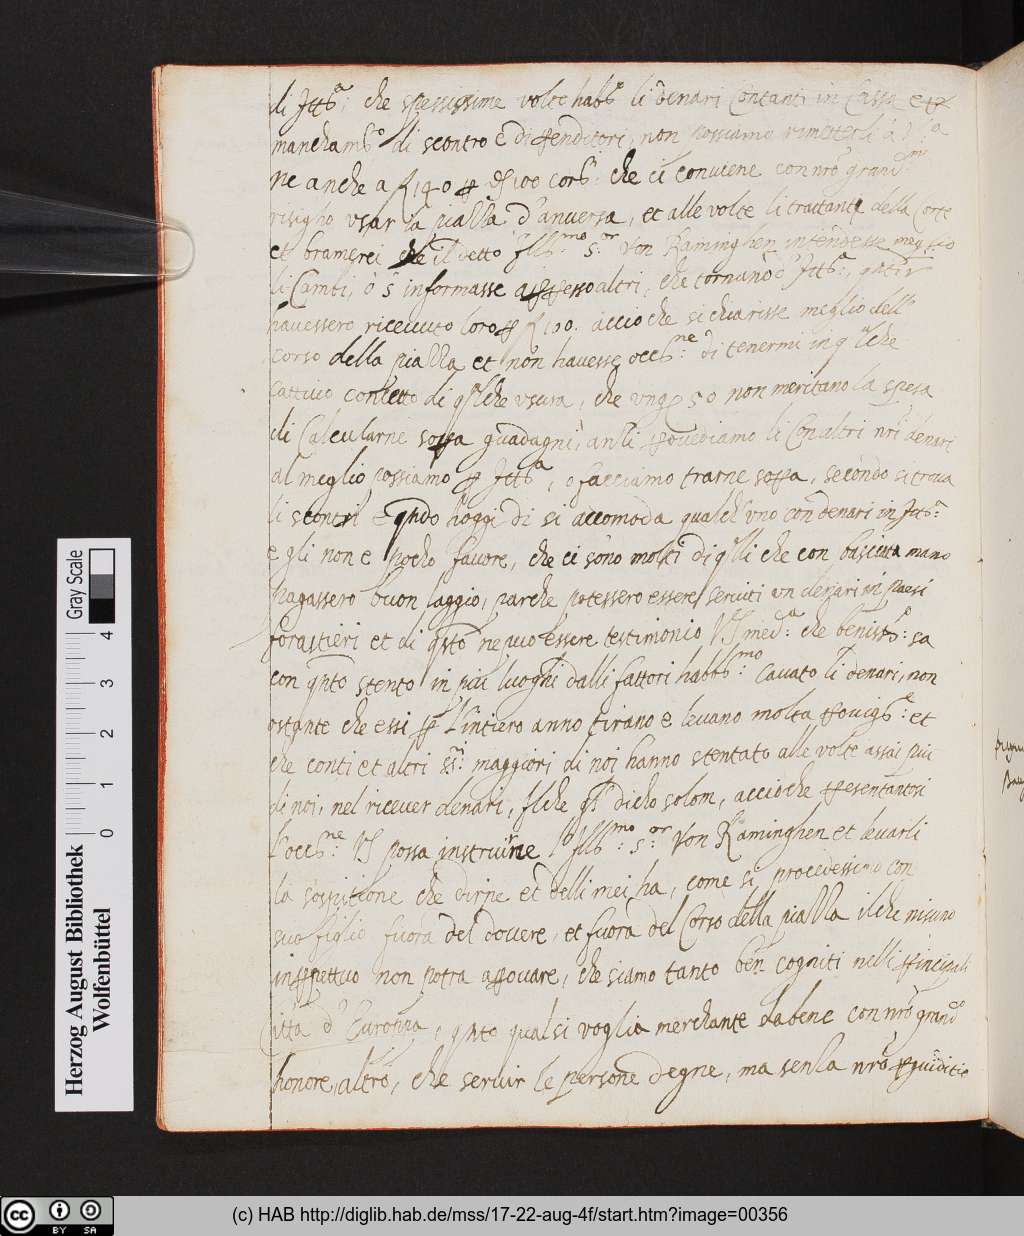 di Itt.ª; che spessissime volte habb.º li denari Contanti in Cassa e p
mancham.º di scontro e dispenditori, non possiamo rimetterli a
ne anche a f 140 p 100 cors.º che ci conviene con nrō grand.mo
risigho usar la piazza d'anversa, et alle volte li trattante della Corte
et bramerei che il detto Ill.mo s.or Von Kaminghen intendesse meglio
li Cambi, ò s'informasse appresso altri, che tornano d'Itt.ª,
havessero ricevuto loro p f 100. accio che si chiarisse meglio dell
corso della piazza et non havesse occ.ne di tenermi in qlche
cattivo concetto di qlche usura, che 50 non meritano la spesa
di Calcularne sopra guadagni, anzi provediamo li Con altri nrī denari
al meglio possiamo p Itt.ª, o facciamo trarne sopra, secondo si trova
li scontri E qndo hoggi di si accomoda qualch'uno con denari in Itt.ª
e gli non e pocho favore, che ci sono molti di qlli che con basciata mano
pagassero buon laggio, parche potessero essere serviti un denari in paesi
forastieri et di qsto ne puo essere testimonio VS med.ª che benis.º sa
con qnto stento in piu luoghi dalli fattori habb.mo Cavato li denari, non
ostante che essi p l'intiero anno tirano e levano molta provig.e et
che conti et altri ss.ri maggiori di noi hanno stentato alle volte assai piu
di noi, nel ricever denari, Ilche gli dicho solom, accioche presentantosi
l'occ.ne VS possa instruirne l'Ill.mo s.or Von Kaminghen et levarli
la sospitione che dirne et delli mei ha, come si procedessimo con
suo figlio fuora del dovere, et fuora del Corso della piazza ilche nisuno
in ppettuo non potra approvare, che siamo tanto ben cogniti nelli principali
Citta d'Europa, qnto qual si voglia merchante dabene con nrō grand.º
honore, altrō, che servir le persone degne, ma senza nrō pguiditio
Herzog August Bibliothek
Wolfenbüttel
0 1 2 3 4
Gray Scale
cc BY SA
(c) HAB http://diglib.hab.de/mss/17-22-aug-4f/start.htm?image=00356